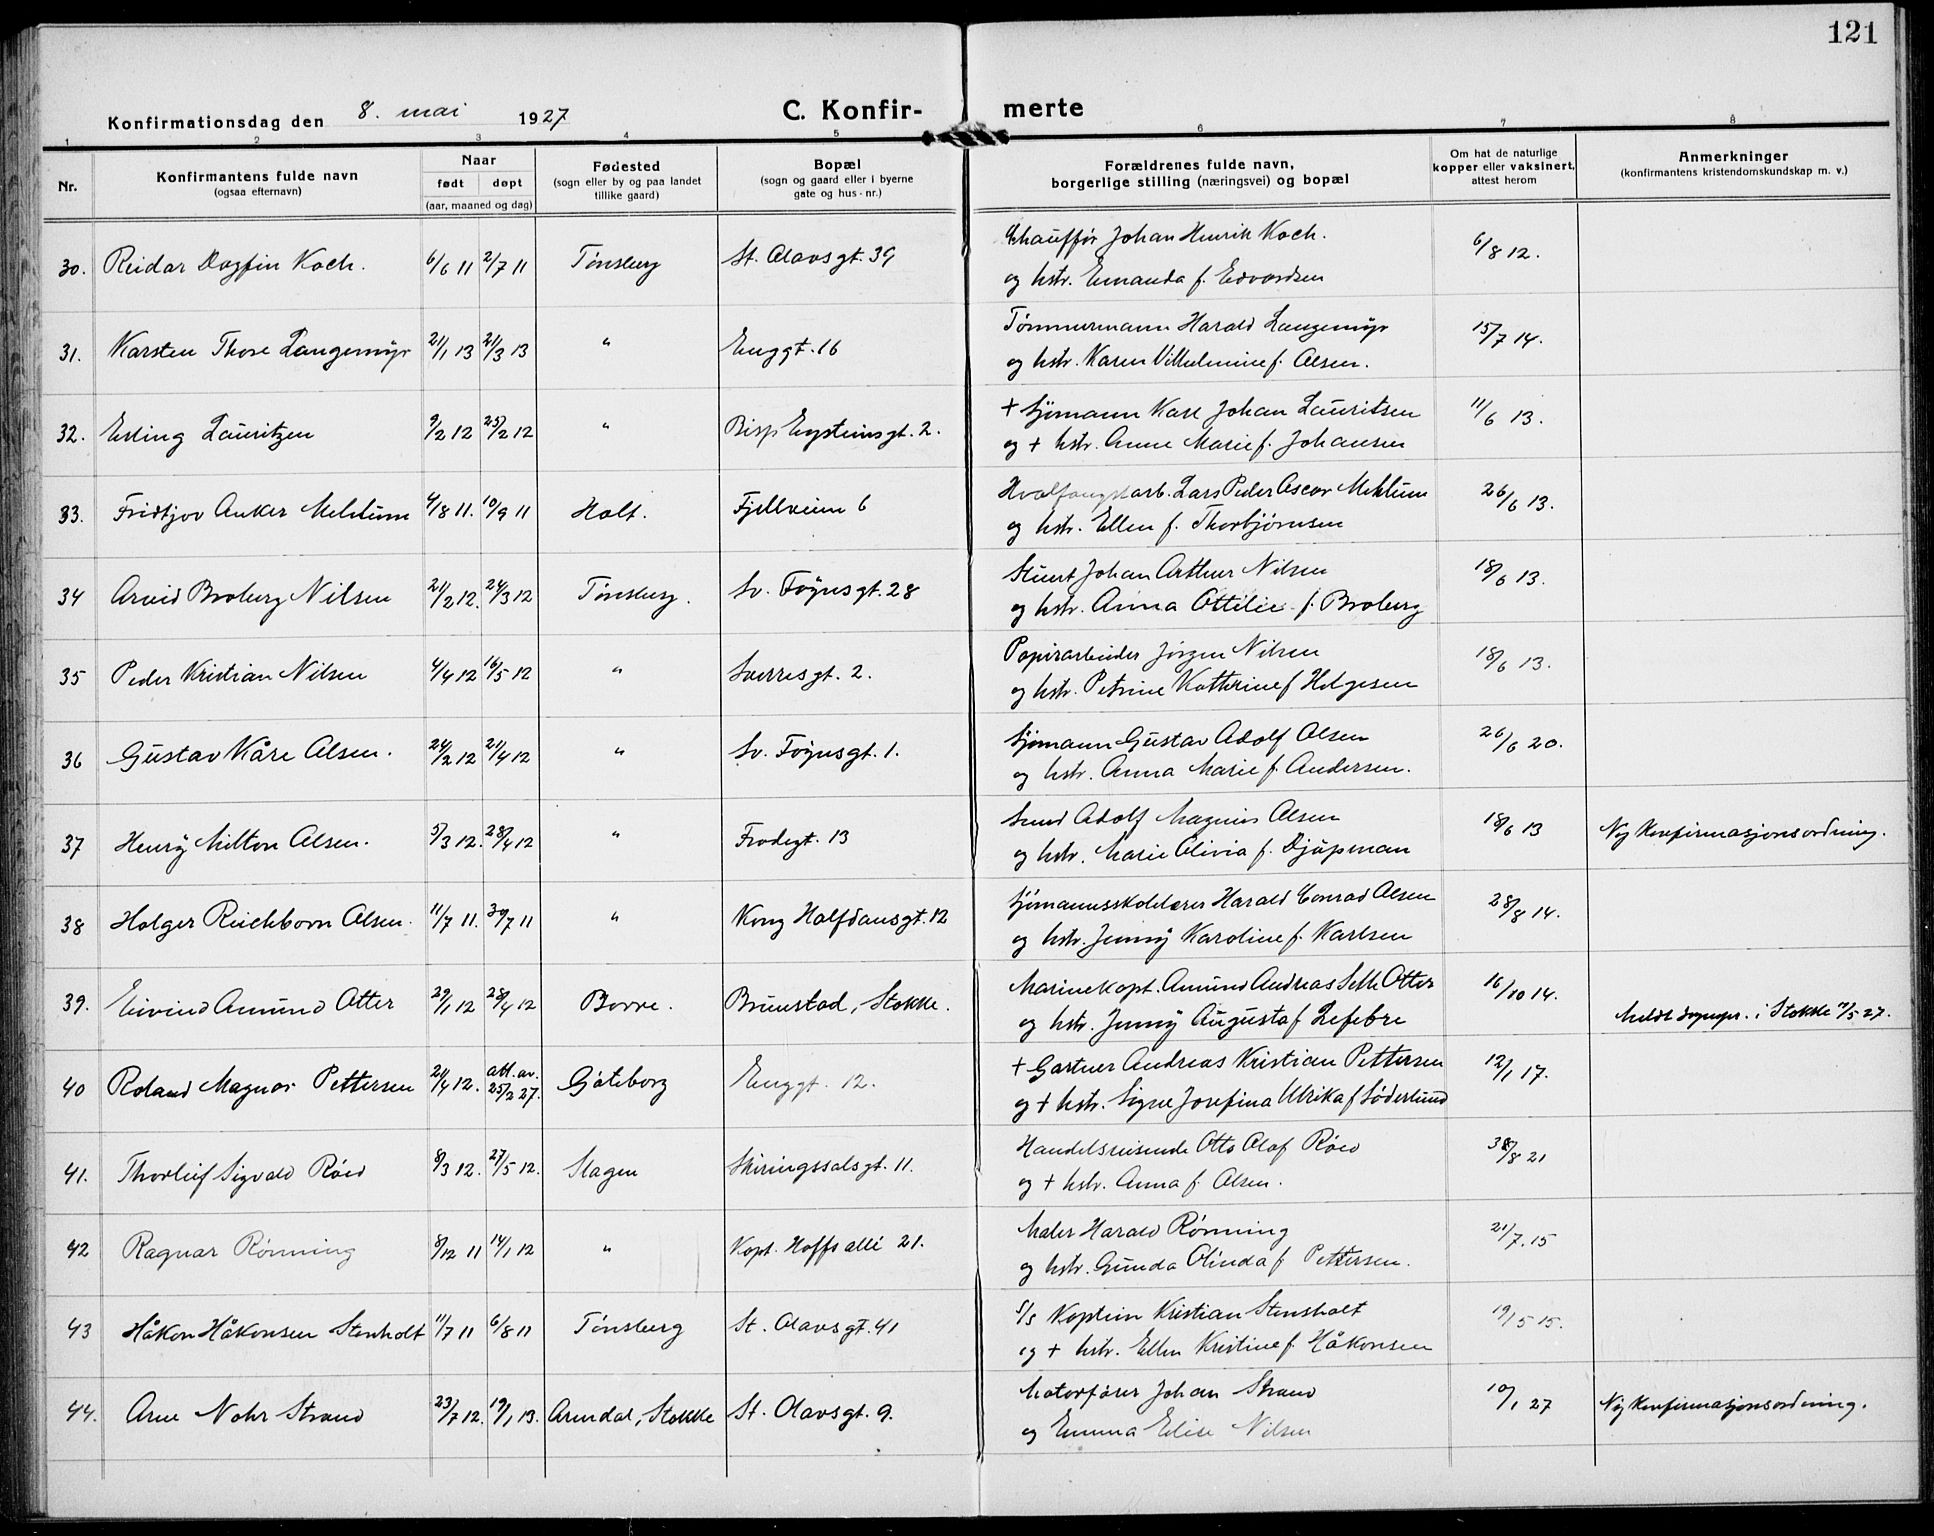 121
Konfirmationsdag den 8. mai 1927
C. Konfirmerte
1 2 3 4 5 6 7 8
Nr. | Konfirmantens fulde navn (ogsaa efternavn) | Naar født døpt (aar, maaned og dag) | Fødested (sogn eller by og paa landet tillike gaard) | Bopæl (sogn og gaard eller i byerne gate og hus-nr.) | Forældrenes fulde navn, borgerlige stilling (næringsvei) og bopæl | Om hat de naturlige kopper eller vaksinert, attest herom | Anmerkninger (konfirmantens kristendomskundskap m. v.)
30. Reidar Dagfin Koch. 6/6 11 2/7 11 Tønsberg St. Olavsgt. 39 Chauffør Johan Henrik Koch. 6/8 12.
og hstr. Emanda f. Edvardsen
31. Karsten Thore Langemyr 21/1 13 21/3 13 " Enggt. 16 Tømmermann Harald Langemyr 15/7 14.
og hstr. Karen Vilhelmine f. Olsen.
32. Erling Lauritzen 9/2 12 25/2 12 " Bisp Eysteinsgt. 2. + Sjømann Karl Johan Lauritsen 11/6 13.
og + hstr. Anne Marie f. Johansen
33. Fridtjov Anker Mehlum 4/8 11. 10/9 11 Holt. Fjellveien 6 Hvalfangstarb. Lars Peder Oscar Mehlum 26/6 13.
og hstr. Ellen f. Thorbjørnsen
34 Arvid Broberg Nilsen 21/2 12. 24/3 12 Tønsberg. Sv. Foynsgt. 28 Stuert Johan Arthur Nilsen 18/6 13.
og hstr. Anna Ottilie f. Broberg
35 Peder Kristian Nilsen 4/4 12 16/5 12 " Sverresgt. 2. Papirarbeider Jørgen Nilsen 18/6 13.
og hstr. Petrine Kathrine f Helgesen
36 Gustav Kåre Olsen. 24/2 12 21/4 12 " Sv. Foynsgt. 1. Sjømann Gustav Adolf Olsen 26/6 20.
og hstr. Anna Marie f. Andersen.
37 Henry Milton Olsen. 5/3 12. 28/4 12 " Frodegt. 13 Smed Adolf Magnus Olsen 18/6 13 Ny Konfirmasjonsordning.
og hstr. Marie Olivia f. Djupman
38 Holger Reichborn Olsen. 11/7 11. 30/7 11 " Kong Halfdansgt. 12 Sjømannsskolelærer Harald Conrad Olsen 28/8 14.
og hstr. Jenny Karoline f. Karlsen
39. Eivind Amund Otter 29/1 12 28/4 12 Borre. Brunstad, Stokke. Marinekapt. Amund Andreas Selle Otter 16/10 14.
og hstr. Jenny Augusta f Lefebre Meldt sognepr. i Stokke 11/5 27.
40 Roland Magnar Pettersen 21/4 12. att. av. 25/2 27. Göteborg Enggt. 12. + Gartner Andreas Kristian Pettersen 12/1 17.
og + hstr. Signe Josefina Ulrika f Söderlund
41. Thorleif Sigvald Røed 8/3 12. 27/5 12. Slagen Skiringssalsgt. 11. Handelsreisende Otto Olaf Røed /8 21
og + hstr. Anna f. Olsen.
42 Ragnar Rønning 8/12 11 14/1 12 " Kapt. Hoffs allé 21. Maler Harald Rønning 21/7. 15
og hstr. Gunda Olinda f Pettersen.
43 Håkon Håkonsen Stenholt 11/7 11 6/8 11 Tønsberg St. Olavsgt. 41 S/S Kaptein Kristian Stensholt 19/5 15.
og + hstr. Ellen Kristine f. Håkonsen
44. Arne Nohr Strand 23/7 12. 19/1 13. Arendal, Stokke St. Olavsgt. 9. Motorfører Johan Strand 10/1 27 Ny Konfirmasjonsordning.
og Emma Elise Nilsen